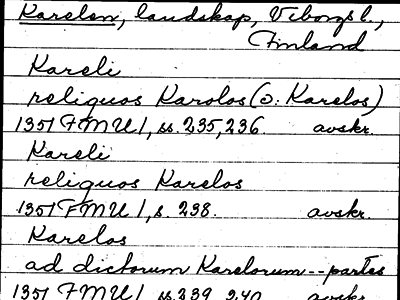 Karelen, landskap, Viborgs l.,
Finland
Kareli
reliquos Karolos (ɔ: Karelos)
1351 FMU 1, ss. 235, 236. avskr.
Kareli
reliquos Karelos
1351 FMU 1, s. 238. avskr.
Karelos
ad dictorum Karelorum -- partes
1351 FMU 1, ss. 239, 240. avskr.